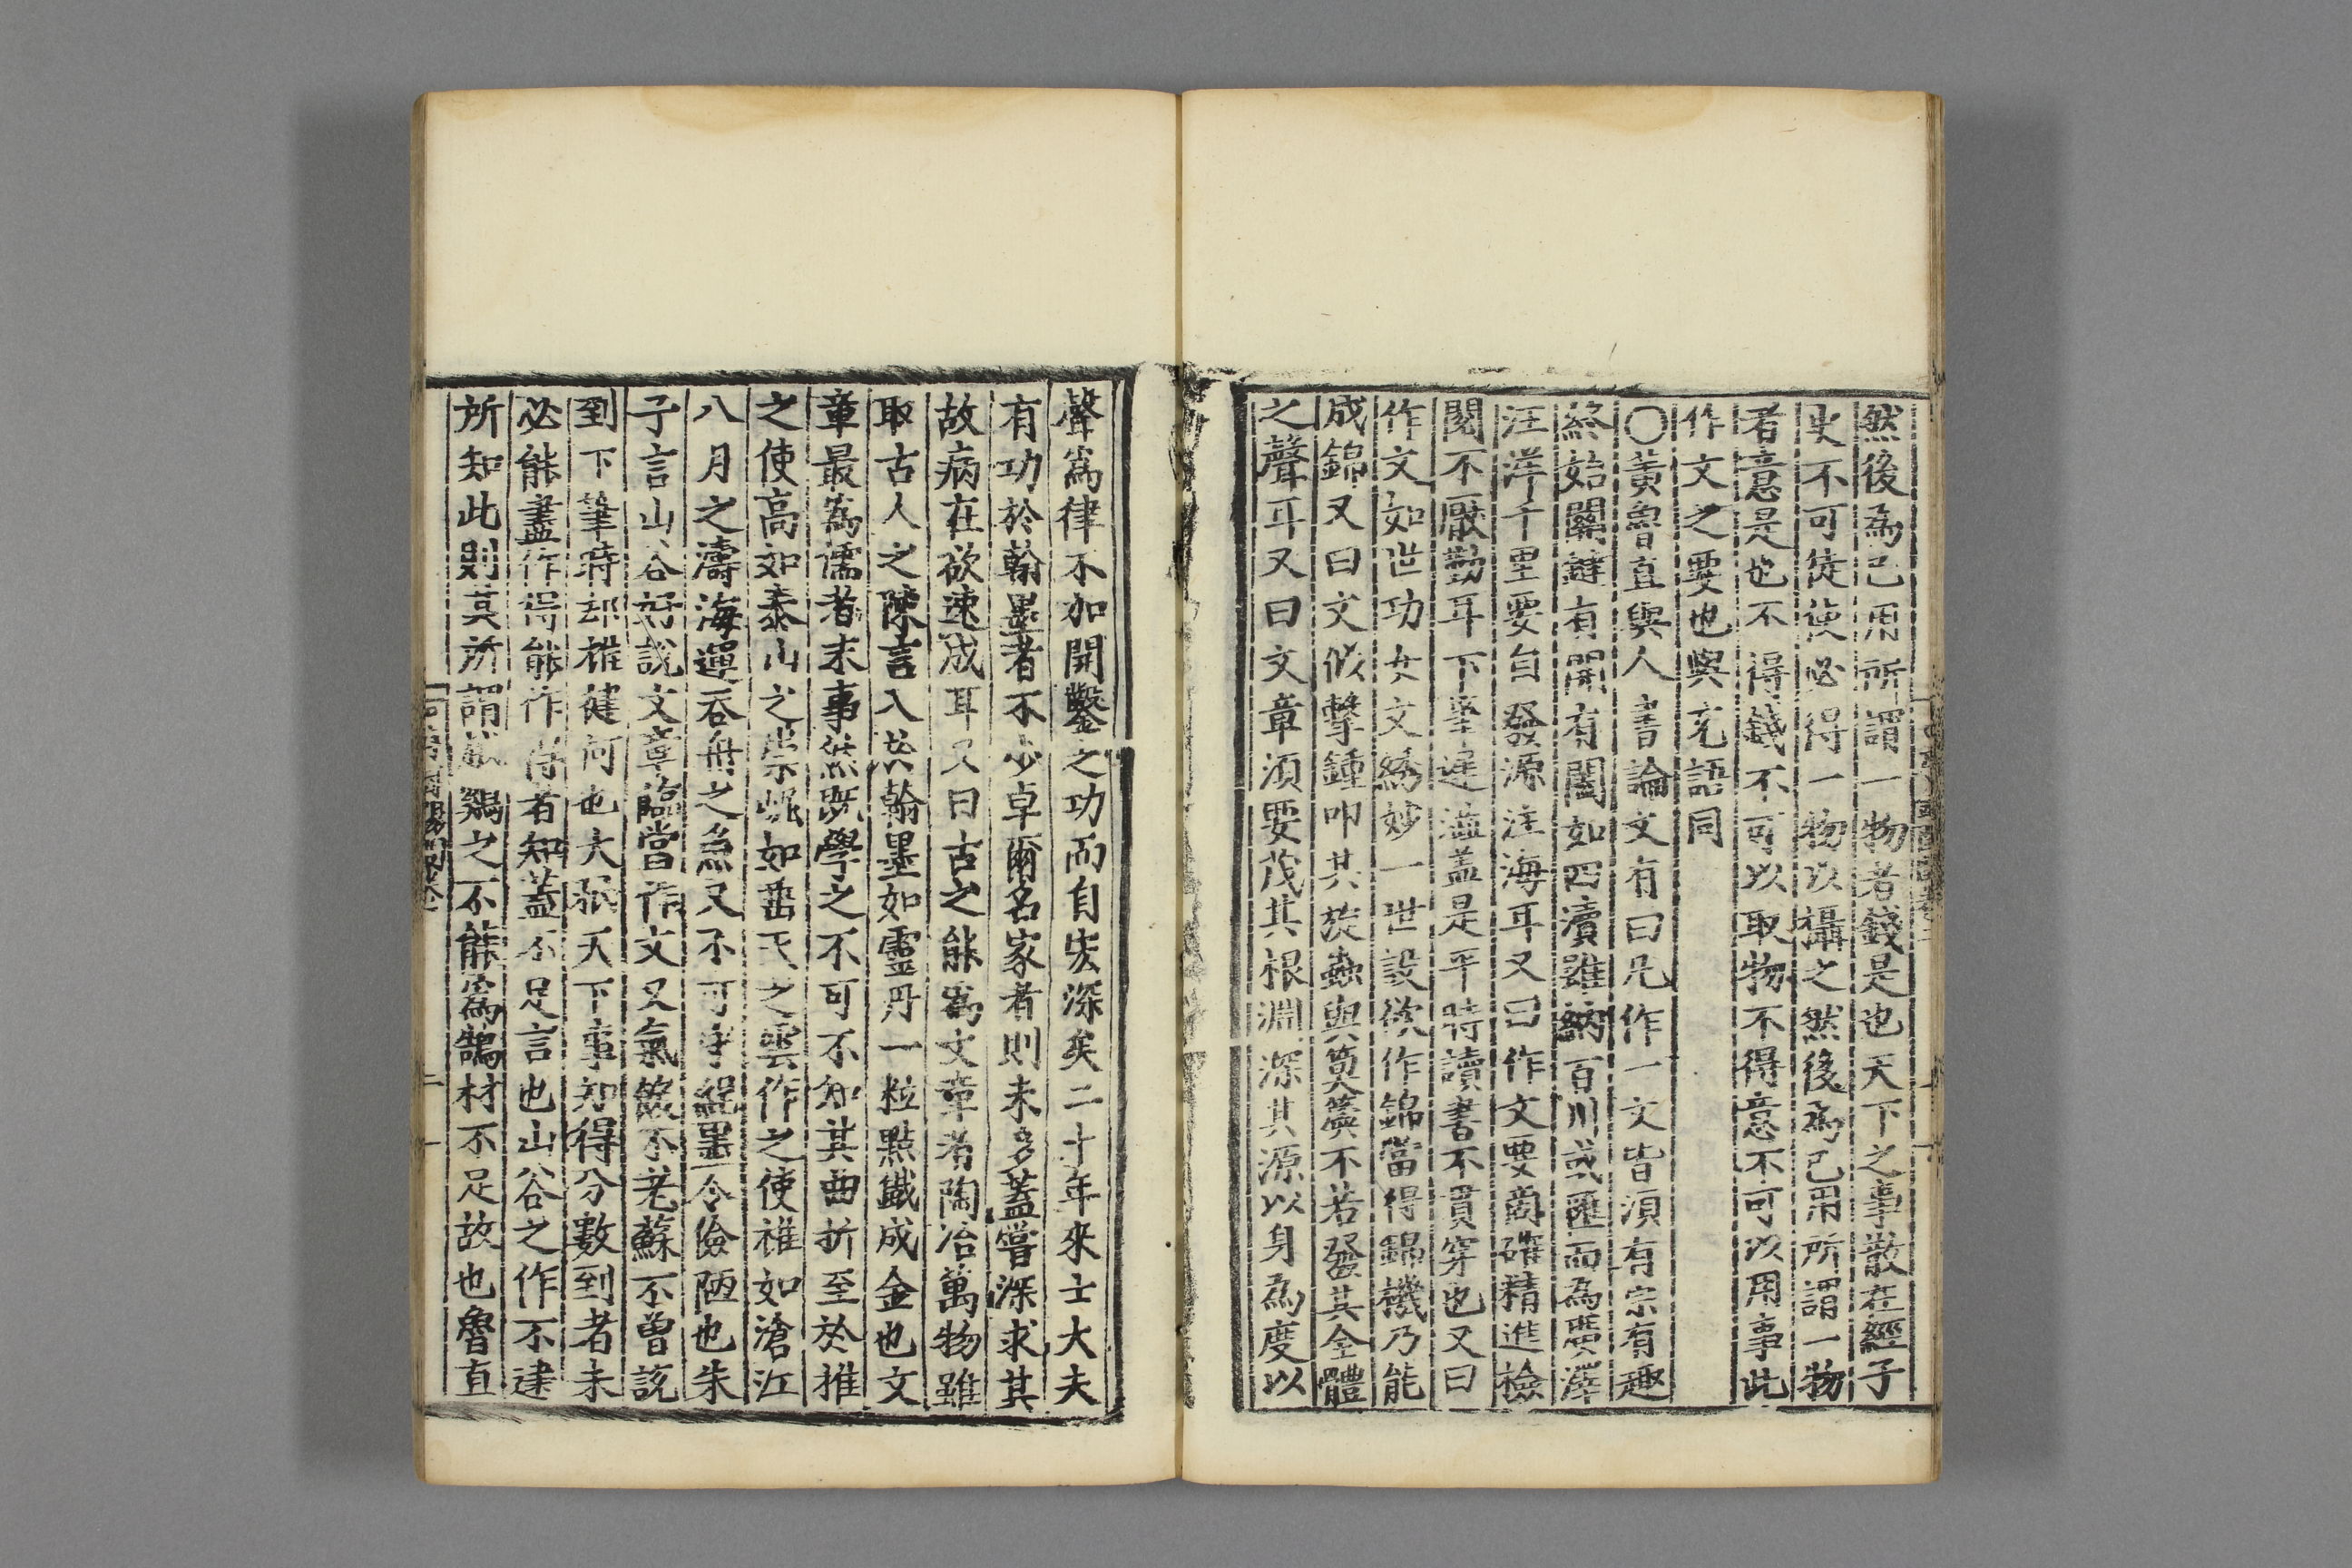 然後為己用所謂一物者錢是也天下之事散在經子
史不可徒使必得一物以攝之然後為己用所謂一物
者意是也不得錢不可以取物不得意不可以用事此
作文之要也與充語同
〇黃魯直與人書論文有曰凡作一文皆須有宗有趣
終始關鍵有開有闔如四瀆雖納百川或匯而為廣澤
汪洋千里要自發源注海耳又曰作文要商確精進檢
閱不厭勤耳下筆遲澁盖是平時讀書不貫穿也又曰
作文如世功女文綉妙一世設欲作錦當得錦機乃能
成錦又曰文似擊鍾叩其旋蟲與莫簨不若發其全體
之聲耳又曰文章須要茂其根淵深其源以身為度以
聲爲律不加開鑿之功而自宏深矣二十年來士大夫
有功於翰墨者不少卓爾名家者則未多蓋嘗深求其
故病在欲速成耳又曰古之能爲文章者陶冶萬物雖
取古人之陳言入於翰墨如靈丹一粒點鐵成金也文
章最爲儒者末事然既學之不可不知其曲折至於推
之使高如泰山之崇崛如垂天之雲作之使雄如滄江
八月之濤海運吞舟之魚又不可守繩墨令儉陋也朱
子言山谷好說文章臨當作文又氣餒不老蘇不曾說
到下筆時却雄健何也大抵天下事知得分數到者未
必能盡作得能作得者知蓋不足言也山谷之作不逮
所知此則莫所謂越鷄之不能爲鵠材不足故也魯直